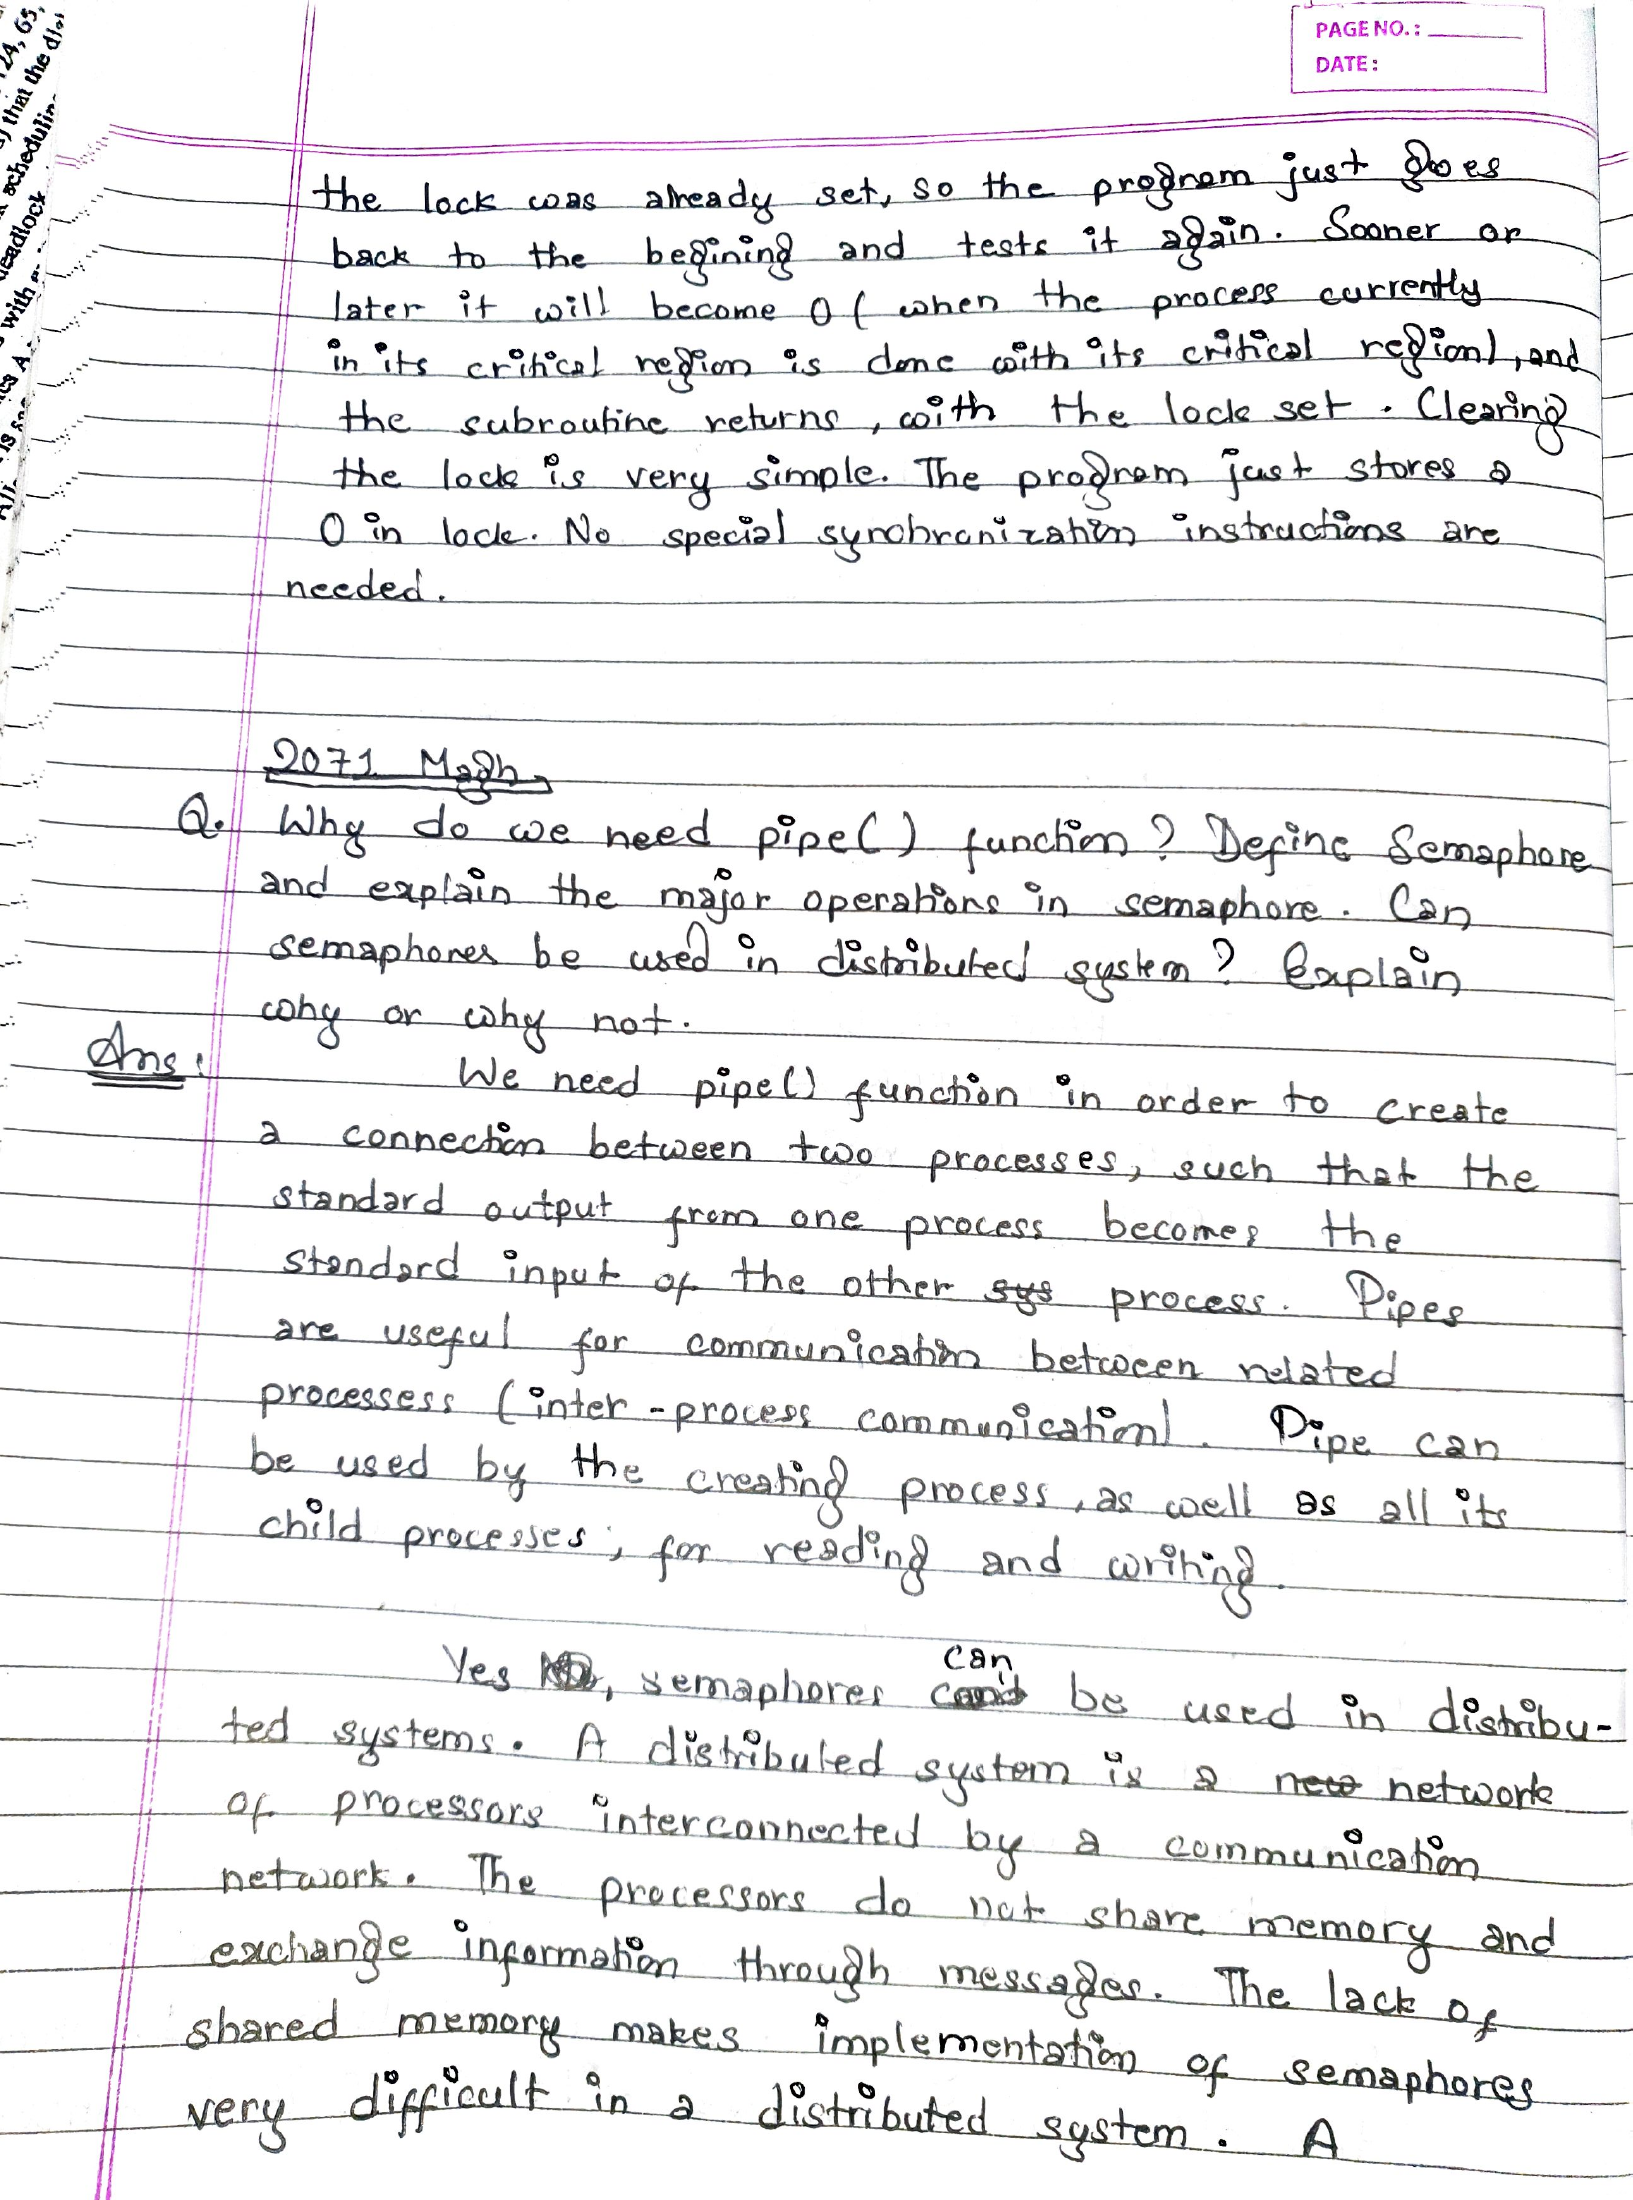 PAGE NO.:
DATE:
the lock was already set, so the program just goes
back to the begining and tests it again. Sooner or
later it will become 0 ( when the process currently
in its critical region is done with its critical region), and
the subroutine returns, with the lock set. Clearing
the lock is very simple. The program just stores a
0 in lock. No special synchronization instructions are
needed.
2071 Magh
Q. Why do we need pipe() function? Define Semaphore
and explain the major operations in semaphore. Can
semaphores be used in distributed system? Explain
why or why not.
Ans:
We need pipe() function in order to create
a connection between two processes, such that the
standard output from one process becomes the
standard input of the other sys process. Pipes
are useful for communication between related
processess (inter-process communication). Pipe can
be used by the creating process, as well as all its
child processes, for reading and writing.
Yes, semaphores can be used in distribu-
ted systems. A distributed system is a new network
of processors interconnected by a communication
network. The processors do not share memory and
exchange information through messages. The lack of
shared memory makes implementation of semaphores
very difficult in a distributed system. A